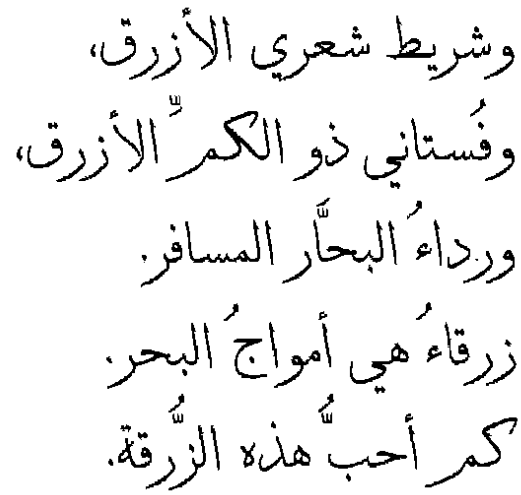 وشريط شعري الأزرق،
وفُستاني ذو الكمِّ الأزرق،
ورداءُ البحَّار المسافر.
زرقاءُ هي أمواجُ البحر.
كم أحبُّ هذه الزُّرقة.